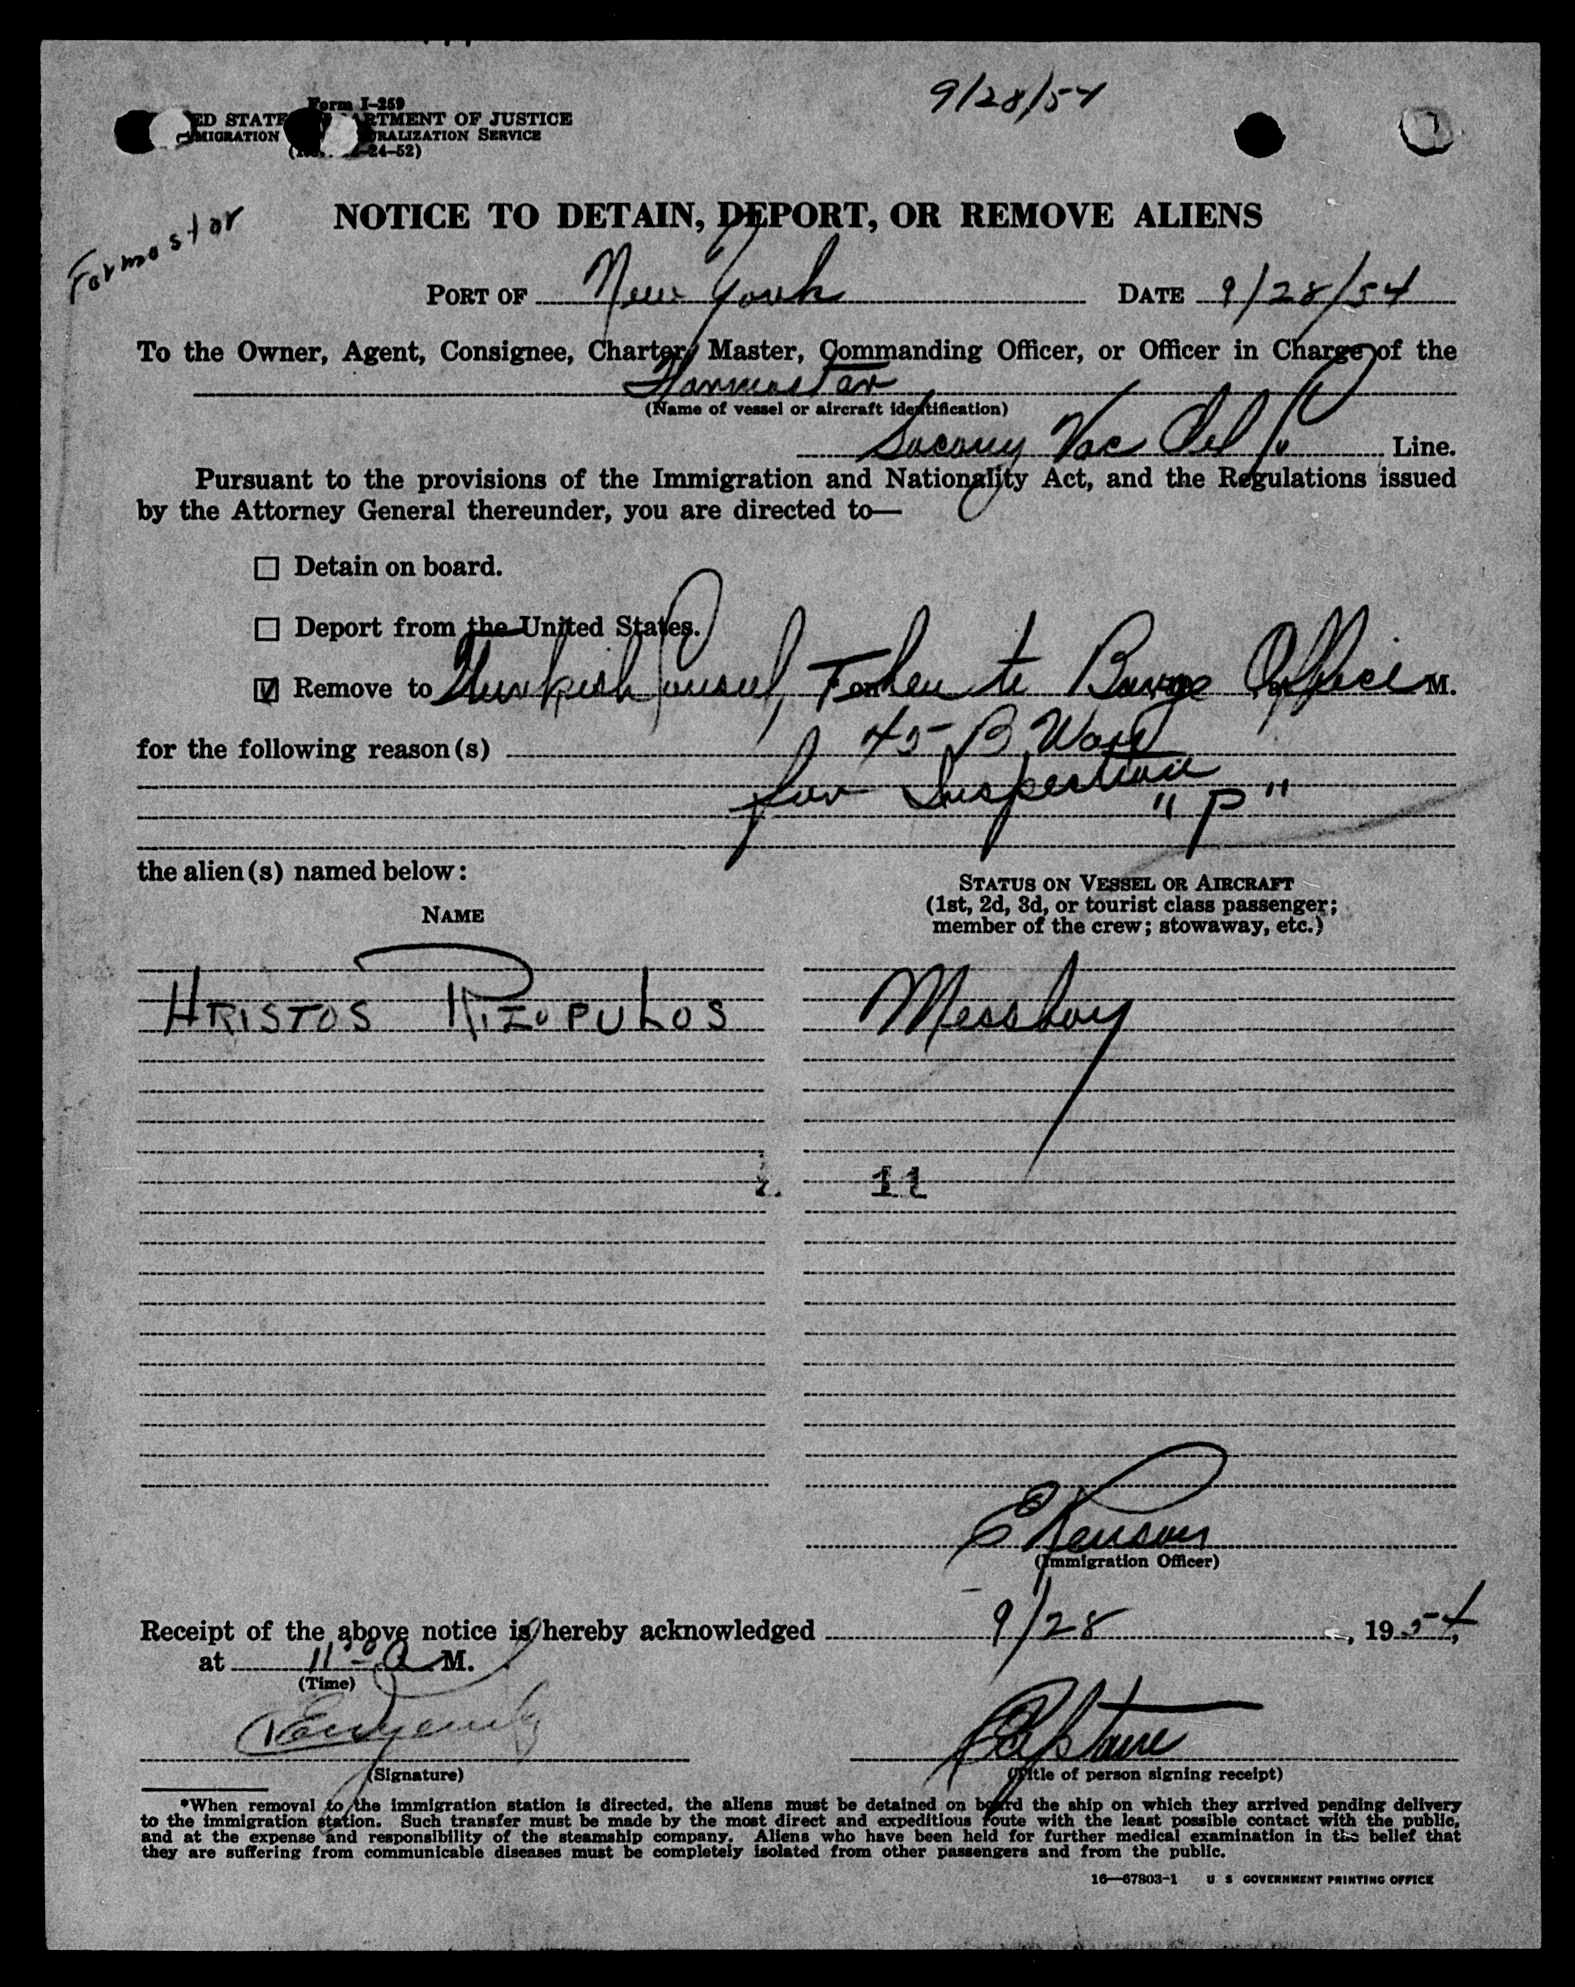 9/28/54
Form I-259
ED STATE RTMENT OF JUSTICE
MIGRATION RALIZATION SERVICE
24-52)
Formostar
NOTICE TO DETAIN, DEPORT, OR REMOVE ALIENS
PORT OF New York DATE 9/28/54
To the Owner, Agent, Consignee, Charter, Master, Commanding Officer, or Officer in Charge of the
Formostar
(Name of vessel or aircraft identification)
Socony Vac Oil Line.
Pursuant to the provisions of the Immigration and Nationality Act, and the Regulations issued
by the Attorney General thereunder, you are directed to—
☐ Detain on board.
☐ Deport from the United States.
☑ Remove to Turkish Consul, Token to Barge Office M.
for the following reason(s) 45 B Way
for Inspection
"P"
the alien(s) named below:
NAME
STATUS ON VESSEL OR AIRCRAFT
(1st, 2d, 3d, or tourist class passenger;
member of the crew; stowaway, etc.)
HRISTOS RIZOPULOS Messboy
11
E Kenson
(Immigration Officer)
Receipt of the above notice is hereby acknowledged 9/28, 1954,
at 11 00 A M.
(Time)
Captain
(Signature) (Title of person signing receipt)
*When removal to the immigration station is directed, the aliens must be detained on board the ship on which they arrived pending delivery
to the immigration station. Such transfer must be made by the most direct and expeditious route with the least possible contact with the public,
and at the expense and responsibility of the steamship company. Aliens who have been held for further medical examination in the belief that
they are suffering from communicable diseases must be completely isolated from other passengers and from the public.
16—67803-1 U S GOVERNMENT PRINTING OFFICE